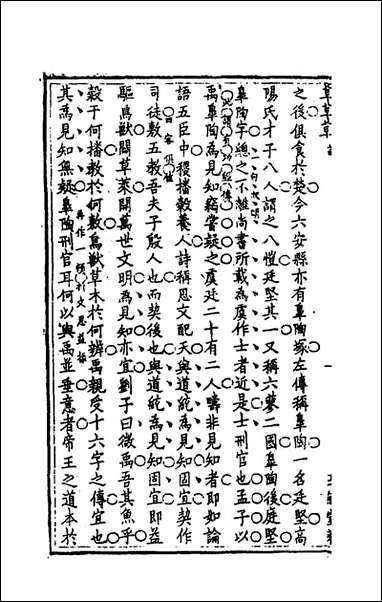 之後俱食於楚今六安縣亦有臯陶塚左傳稱臯陶一名廷堅高
陽氏才子八人謂之八愷廷堅其一又稱六蓼二國臯陶後庭堅
臯陶字總之不離尚書所載為虞作士者近是士刑官也孟子以
禹臯陶為見知竊嘗疑之虞廷二十有二人疇非見知者即如論
語五臣中稷播穀養人詩稱思文配天與道統為見知固宜契作
司徒敷五教吾夫子殷人也而契後也與道統為見知固宜即益
驅鳥獸闢草萊開萬世文明為見知亦宜劉子曰微禹吾其魚乎
穀于何播教於何敷鳥獸草木於何辨禹親受十六字之傳宜也
其為見知無疑臯陶刑官耳何以與禹並垂意者帝王之道本於
再作一頓